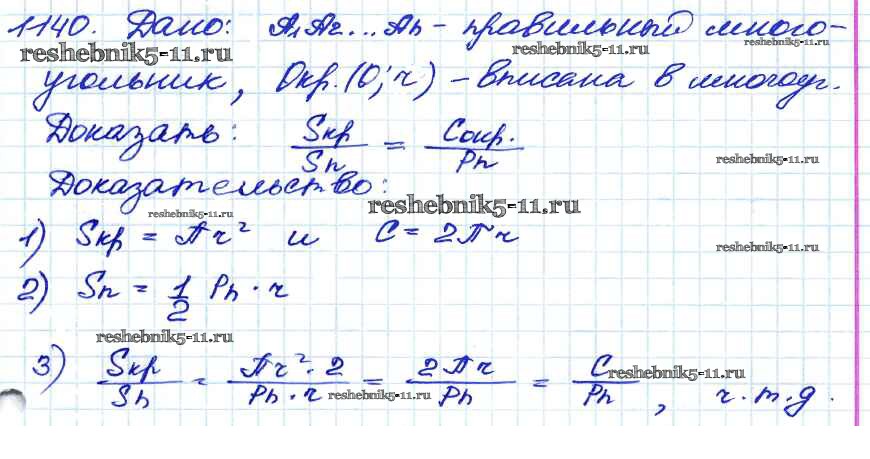 1140. Дано: A₁A₂...Aₙ - правильный много-
reshebnik5-11.ru reshebnik5-11.ru
угольник, Окр.(O; r) - вписана в многоуг.
Доказать: Sкр/Sn = Cокр./Pn
reshebnik5-11.ru
Доказательство:
reshebnik5-11.ru reshebnik5-11.ru
1) Sкр = πr² и C = 2πr
reshebnik5-11.ru
2) Sn = 1/2 Pn · r
reshebnik5-11.ru
3) Sкр/Sn = πr²·2/Pn·r = 2πr/Pn = C/Pn, ч.т.д.
reshebnik5-11.ru
reshebnik5-11.ru